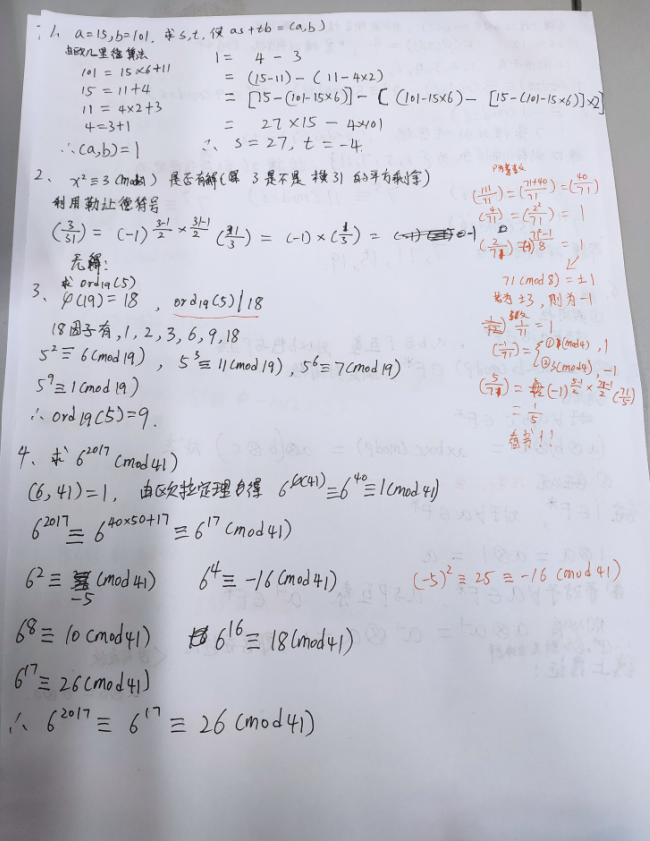 一、1、a=15, b=101. 求s,t, 使as+tb=(a,b)
由欧几里得算法
101 = 15×6+11
15 = 11+4
11 = 4×2+3
4=3+1
∴(a,b)=1
1 = 4 - 3
= (15-11) - (11-4×2)
= [15-(101-15×6)] - [(101-15×6) - [15-(101-15×6)]×2]
= 27×15 - 4×101
∴ s=27, t=-4.
2、x²≡3(mod31) 是否有解(即3是不是模31的平方剩余)
利用勒让德符号
(3/31) = (-1)^{(3-1)/2 × (31-1)/2} (31/3) = (-1)×(1/3) = -1
无解.
求ord₁₉(5)
3、φ(19)=18, ord₁₉(5)|18
18因子有, 1, 2, 3, 6, 9, 18
5²≡6(mod19), 5³≡11(mod19), 5⁶≡7(mod19)
5⁹≡1(mod19)
∴ord₁₉(5)=9.
4、求6²⁰¹⁷(mod41)
(6,41)=1, 由欧拉定理可得 6^{φ(41)}≡6⁴⁰≡1(mod41)
6²⁰¹⁷≡6^{40×50+17}≡6¹⁷(mod41)
6²≡-5(mod41) 6⁴≡-16(mod41)
6⁸≡10(mod41) 6¹⁶≡18(mod41)
6¹⁷≡26(mod41)
∴6²⁰¹⁷≡6¹⁷≡26(mod41)
(111/71)=(71+40/71)=(40/71)
(4/71)=(2²/71)=1
71(mod8)=±1
若为±3,则为-1
(1/71)=1
(5/71)=(-1)^{(5-1)/2 × (71-1)/2}(71/5)
=1/5
(-5)²≡25≡-16(mod41)